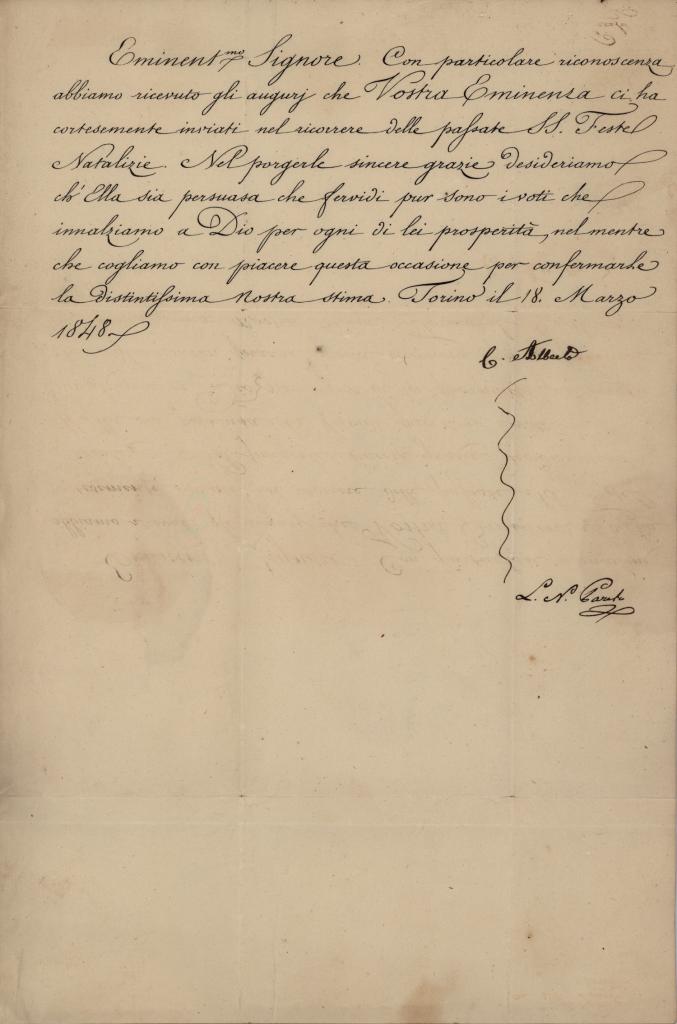 Eminent.mo Signore. Con particolare riconoscenza
abbiamo ricevuto gli augurj che Vostra Eminenza ci ha
cortesemente inviati nel ricorrere delle passate SS. Feste
Natalizie. Nel porgerle sincere grazie desideriamo
ch'Ella sia persuasa che fervidi pur sono i voti che
innalziamo a Dio per ogni di lei prosperità, nel mentre
che cogliamo con piacere questa occasione per confermarLe
la distintissima nostra stima. Torino il 18. Marzo
1848
C. Alberto
L. N. Pareto